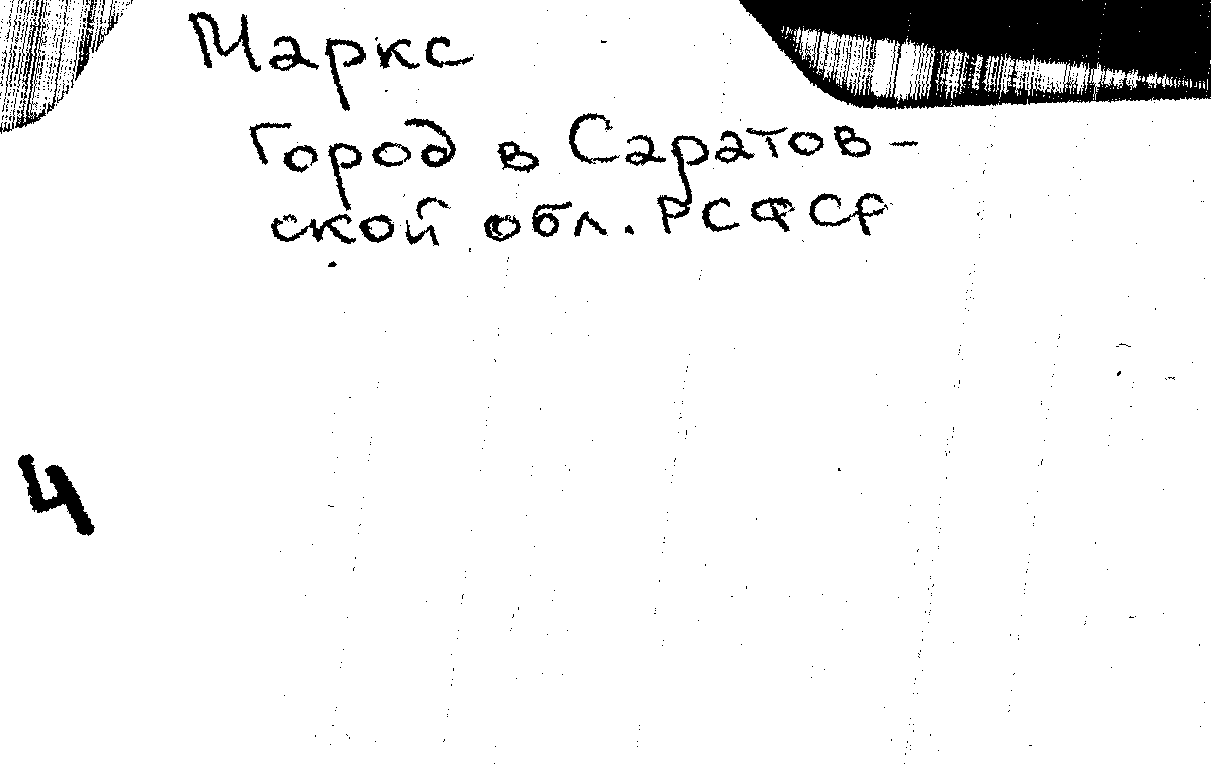 Маркс
Город в Саратов-
ской обл. РСФСР
4